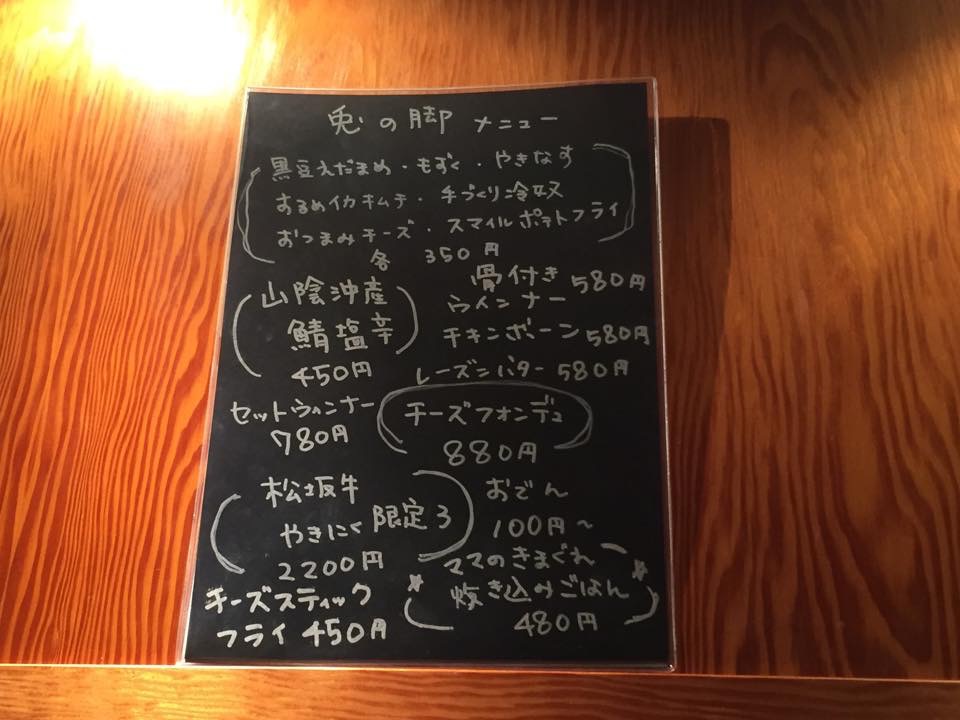 兎の脚 メニュー
黒豆えだまめ・もずく・やきなす
するめイカキムチ・手づくり冷奴
おつまみチーズ・スマイルポテトフライ
各 350円
山陰沖産
鯖塩辛
450円
骨付き
ウインナー 580円
チキンボーン 580円
レーズンバター 580円
セットウィンナー
780円
チーズフォンデュ
880円
松坂牛
やきにく 限定3
2200円
おでん
100円～
チーズスティック
フライ 450円
ママのきまぐれ
炊き込みごはん
480円